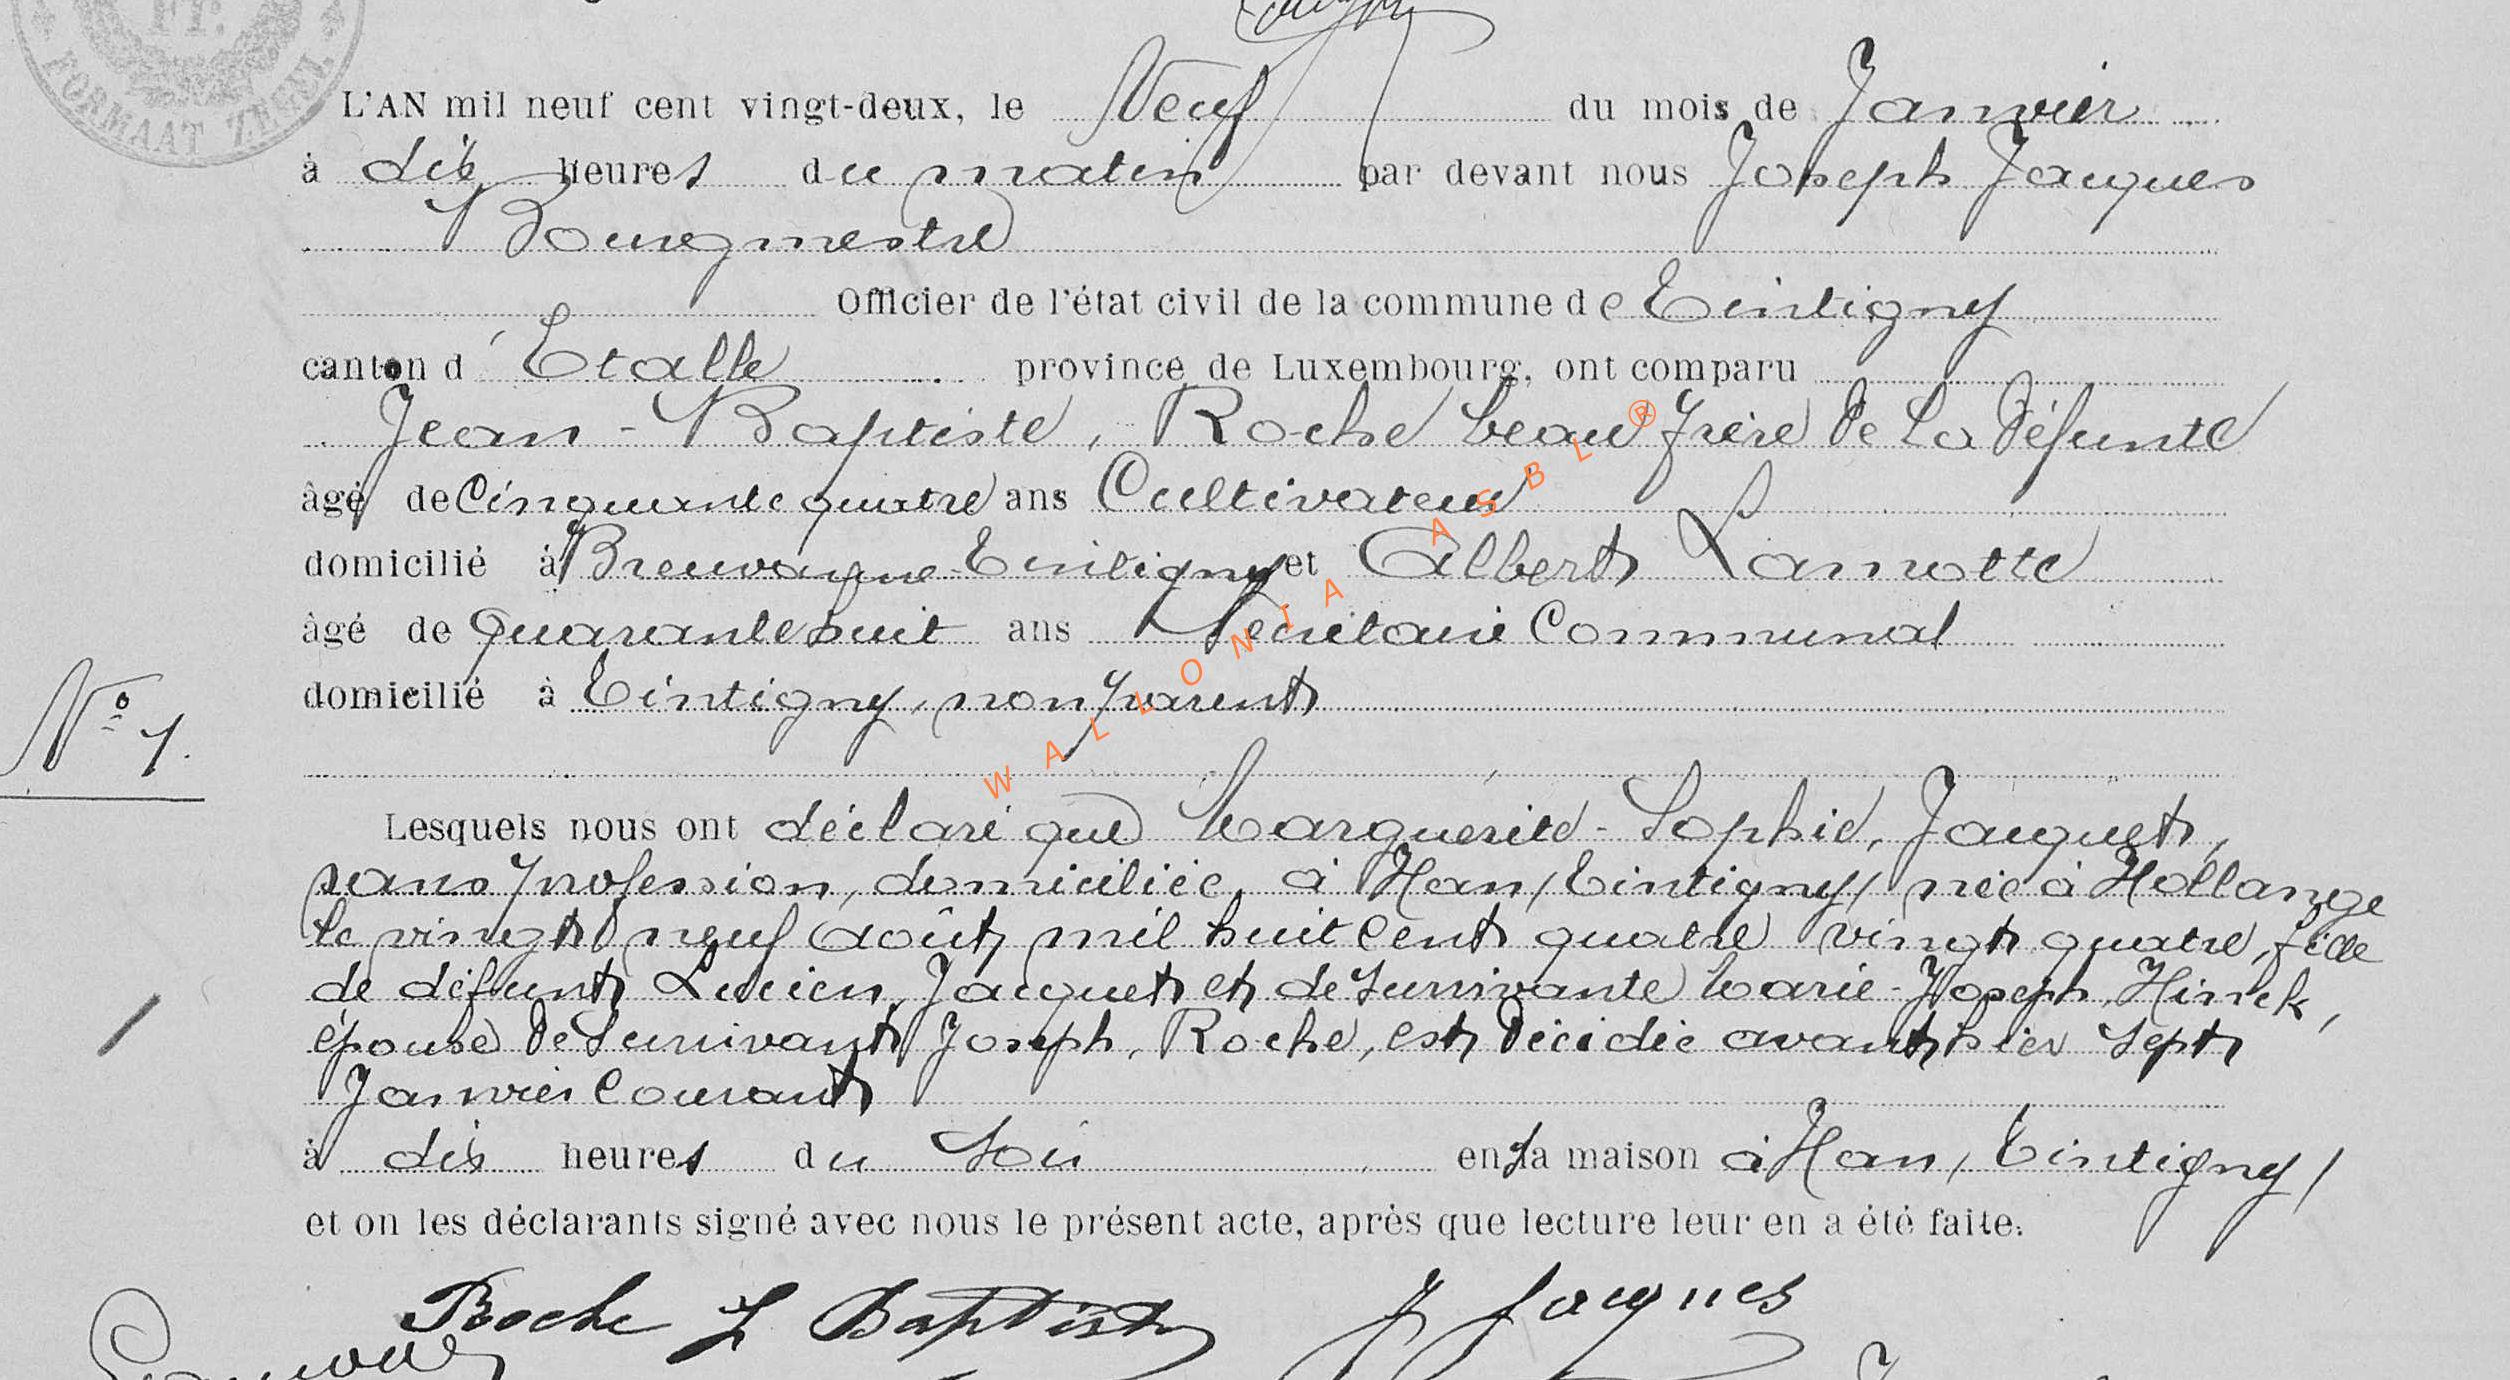 FORMAAT ZEGEL
L'AN mil neuf cent vingt-deux, le Neuf du mois de Janvier
à dix heures du matin par devant nous Joseph Jacques
Bourgmestre
Officier de l'état civil de la commune de Tintigny
canton d'Etalle province de Luxembourg, ont comparu
Jean-Baptiste, Roche beau frère de la défunte
âgé de Cinquante quatre ans Cultivateur
domicilié à Breuvanne-Tintigny et Albert Lamotte
âgé de Quarante huit ans Secrétaire Communal
domicilié à Tintigny, non parent
WALLONIA ASBL ®
N° 1.
Lesquels nous ont déclaré que Marguerite-Sophie, Jacquet,
sans profession, domiciliée à Han /Tintigny/ née à Hollange
le vingt neuf août mil huit cent quatre vingt quatre, fille
de défunt Lucien, Jacquet et de survivante Marie-Joseph, Hinck,
épouse de survivant Joseph, Roche, est décédée avant hier sept
Janvier Courant
à dix heures du soir en sa maison à Han /Tintigny/
et on les déclarants signé avec nous le présent acte, après que lecture leur en a été faite.
Roche J Baptiste J Jacques